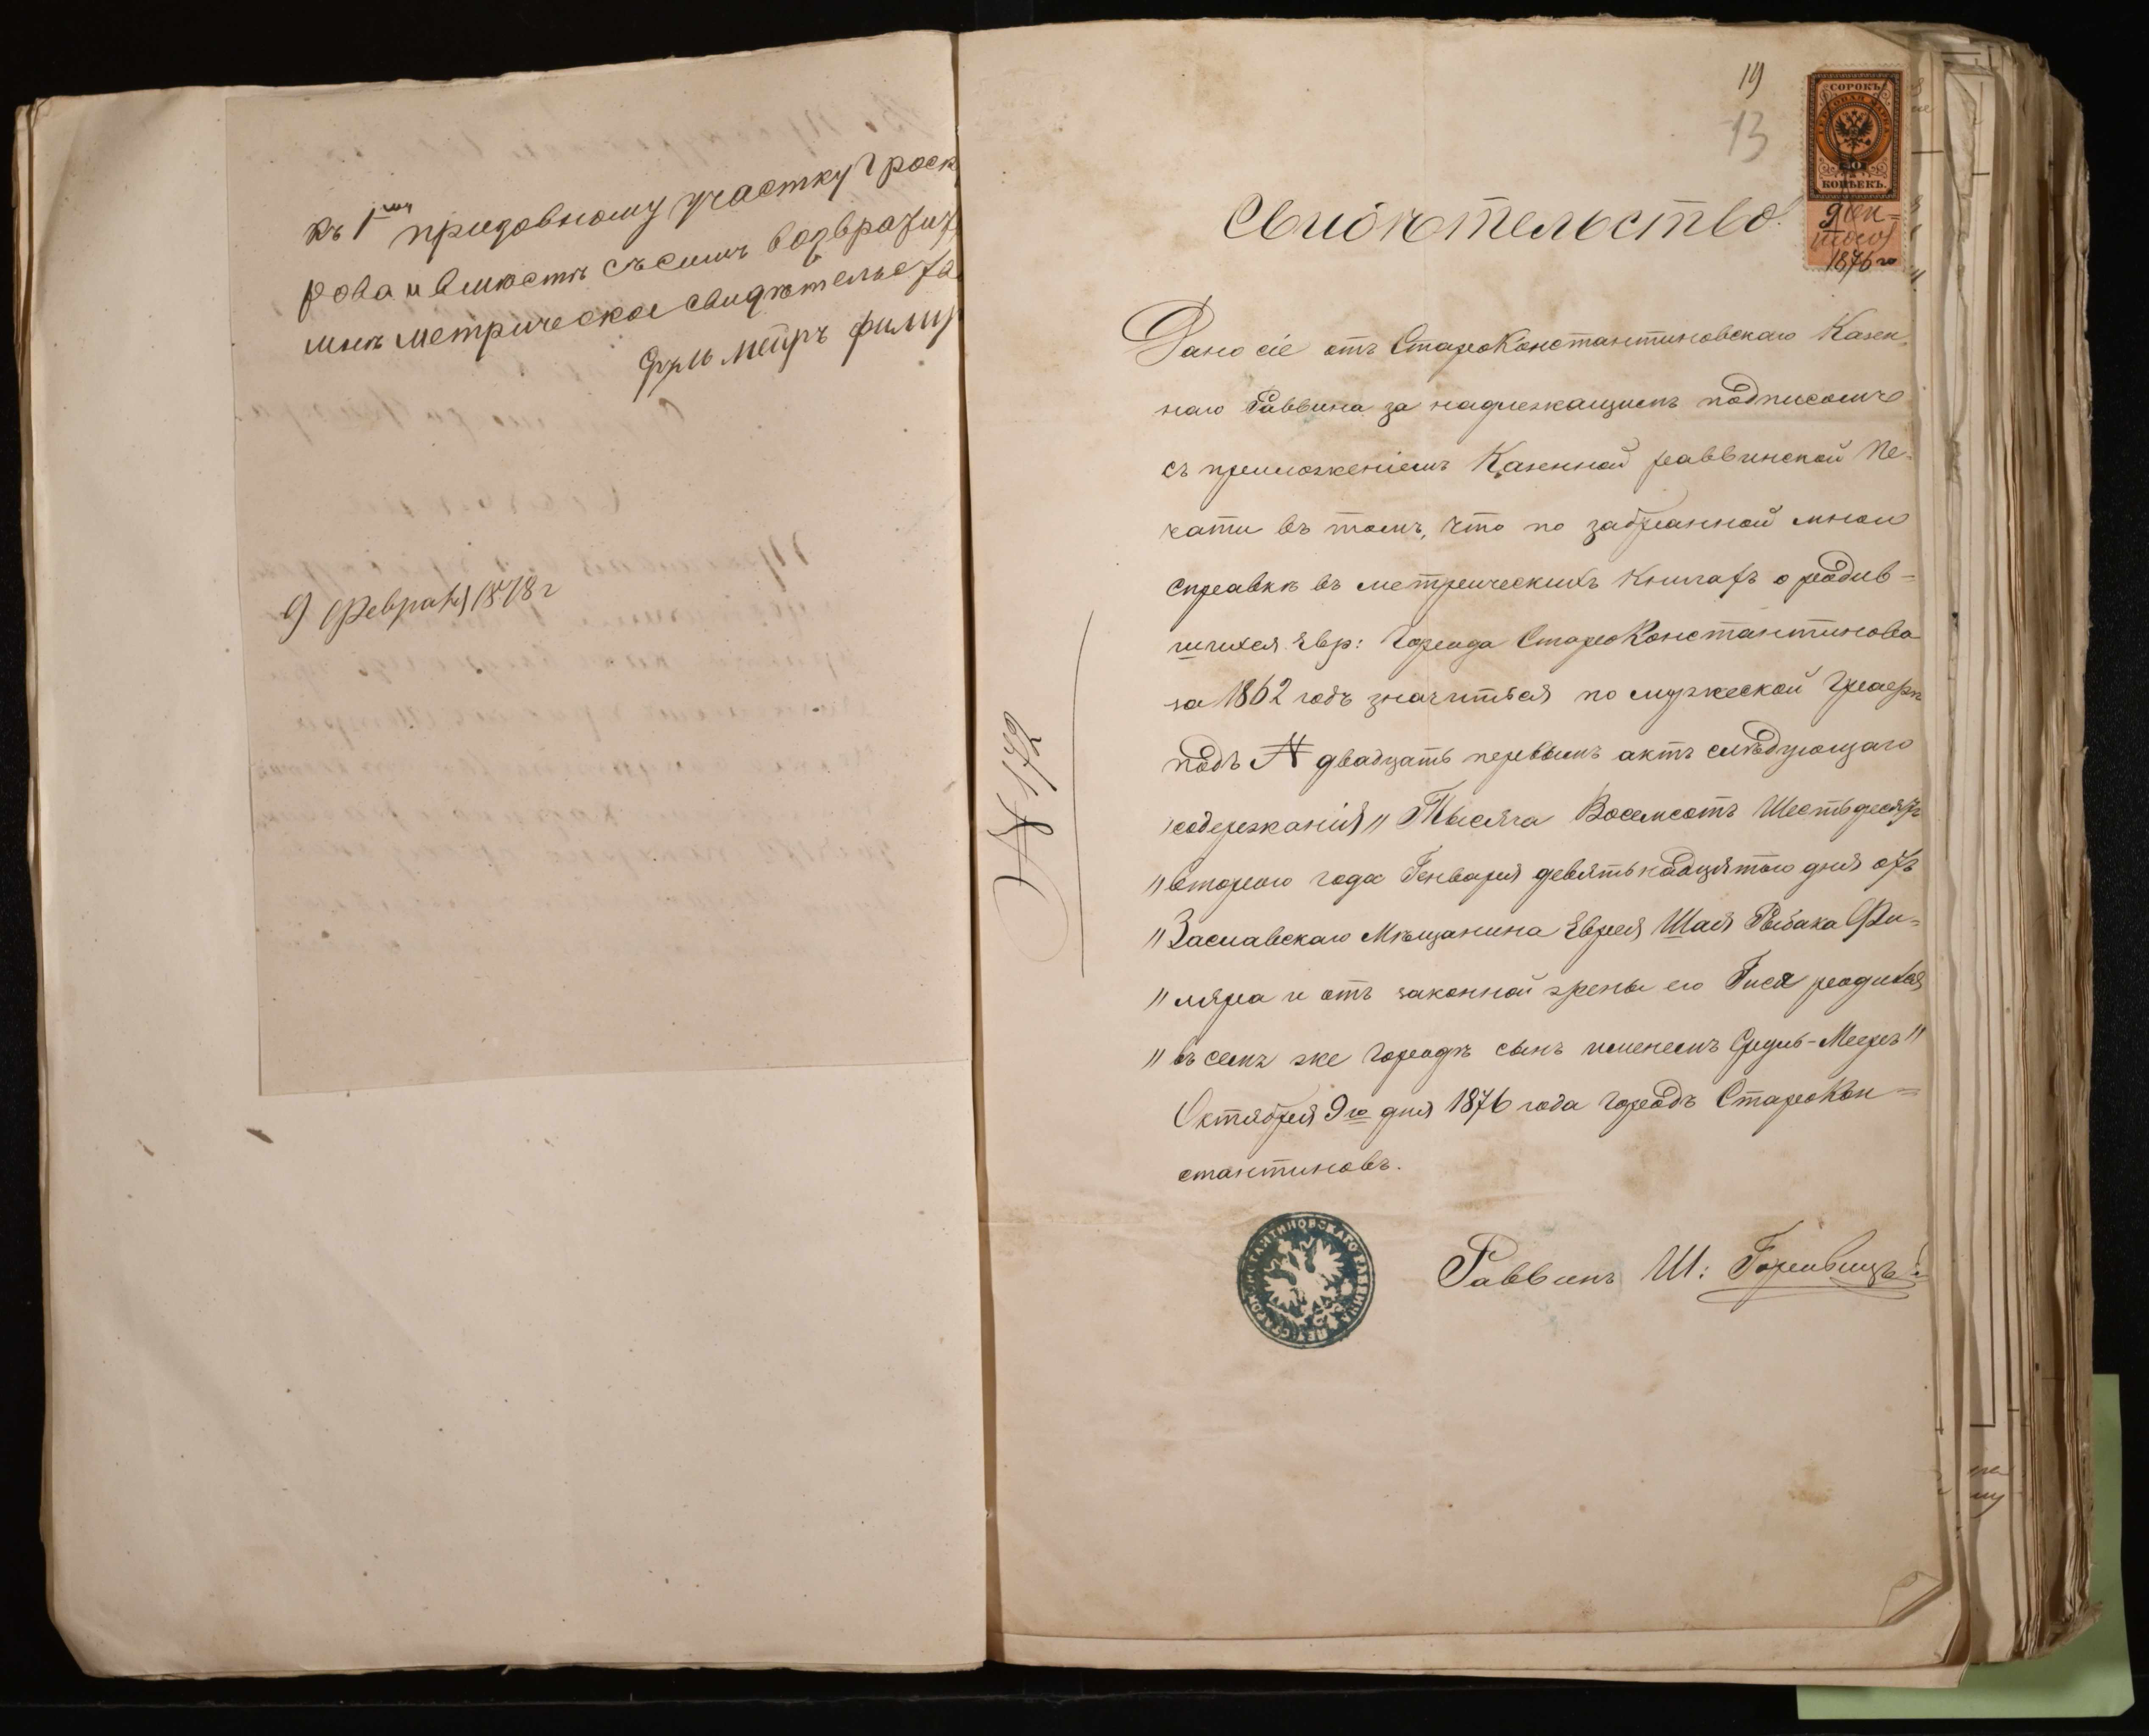 къ 1му призовному участку г роск
рова и вмѣстѣ съ симъ возвратит
мнѣ метрическое свидѣтельства
Мейръ филир
9 Февраля 1878 г
19
13
СОРОКЪ
ГЕРБОВАЯ МАРКА
40
КОПѢЕКЪ.
9 Ок=
тября
1876 го
Свидѣтельство.
Дано сіе отъ СтароКонстантиновскаго Казен
наго Раввина за надлежащимъ подписомъ
съ приложеніемъ Казенной раввинской Пе-
чати въ томъ, что по забранной мною
справкѣ въ метрическихъ Книгахъ о родив=
шихся Евр: Города СтароКонстантинова
за 1862 годъ значиться по мужеской Графѣ
подъ N двадцать первымъ актъ слѣдующаго
содержанія „Тысяча Восемсотъ Шестьдесятъ
„втораго года Генваря девятьнадцятого дня отъ
„Заславскаго Мѣщанина Еврея Шая Рыбака Фи=
„ляра и отъ законной жены его Гися родился
„въ семъ же Городѣ сынъ именемъ Сруль-Мееръ"
Октября 9го дня 1876 года Городъ СтароКон=
стантиновъ.
N 172
СТАРОКОНСТАНТИНОВСКАГО РАВВИНА ПЕЧ
Раввинъ Ш: Горовицъ